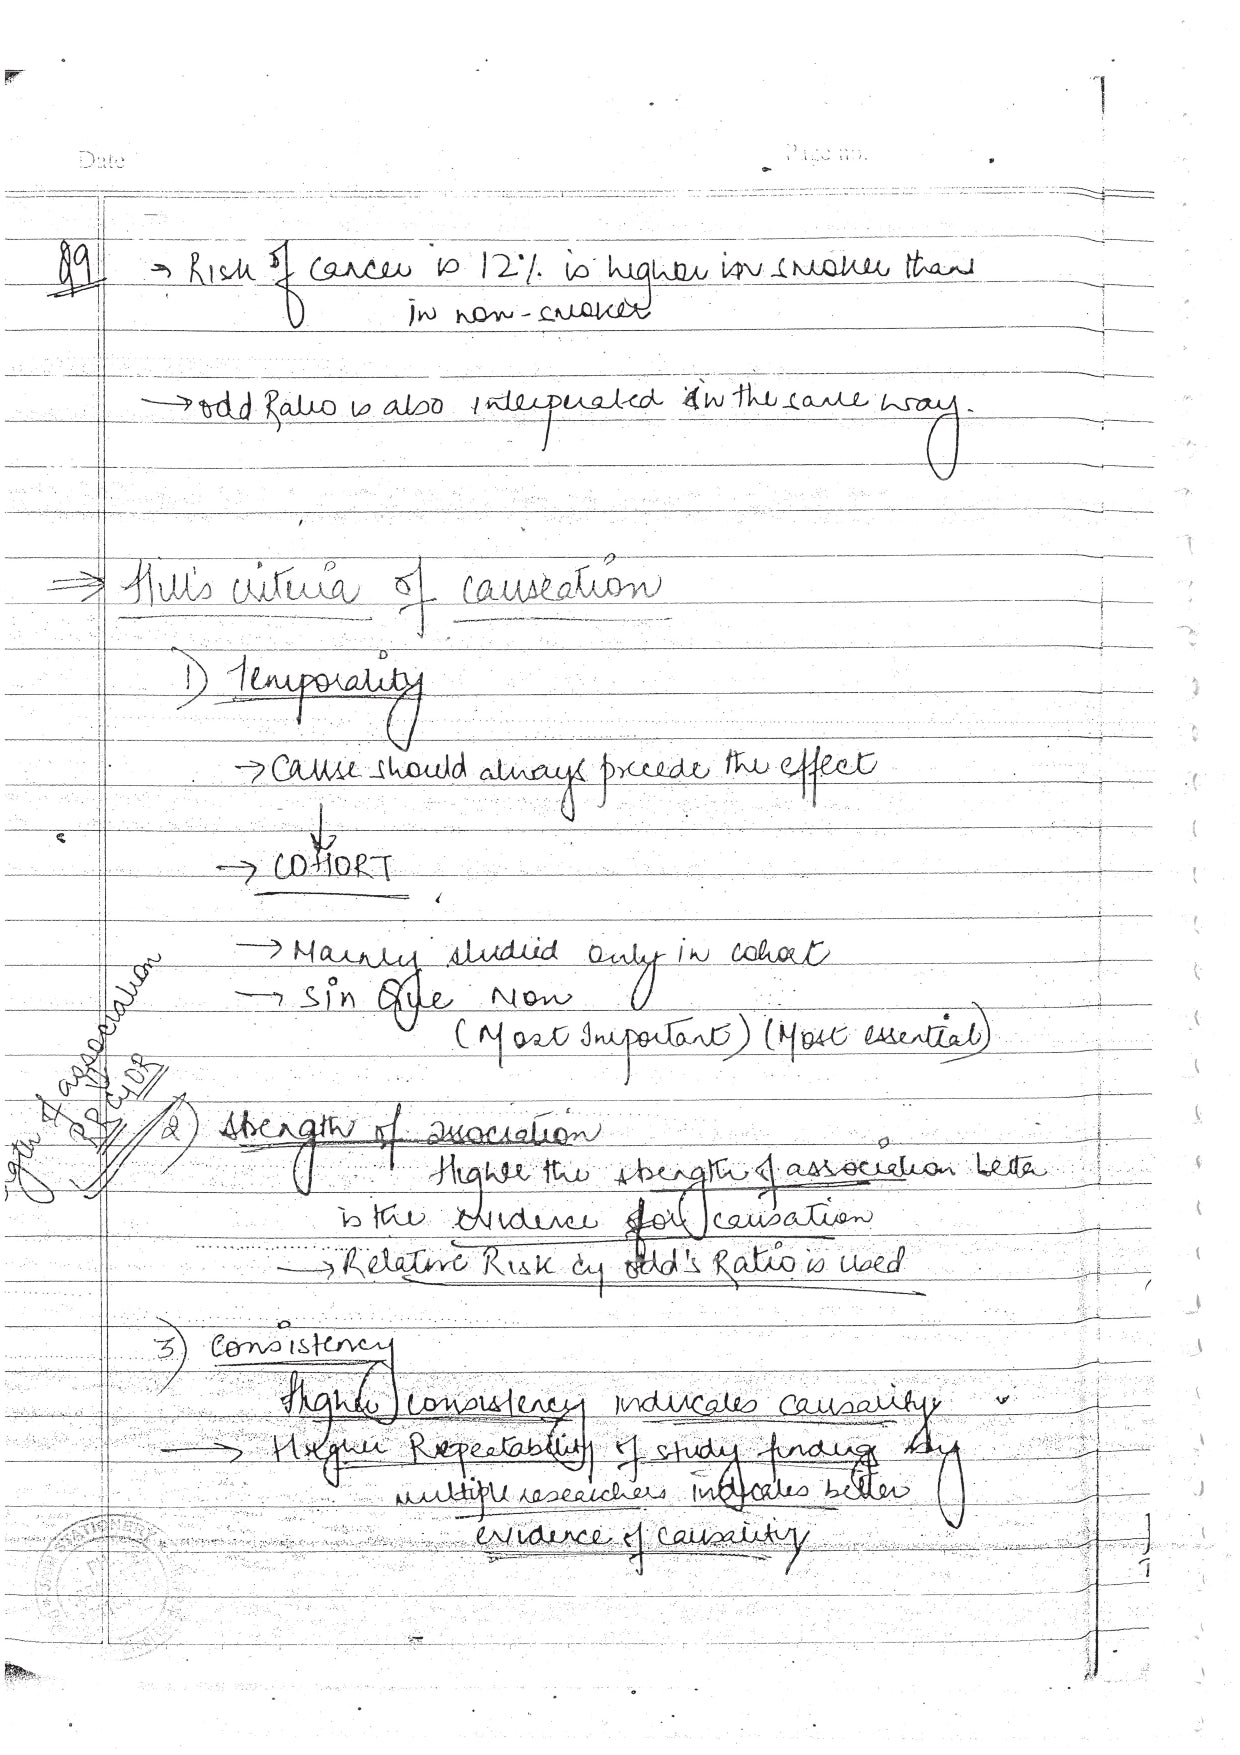 Date
Page no.
Q9 → Risk of cancer is 12% is higher in smoker than
in non-smoker
→ odd Ratio is also interperated in the same way.
⇒ Hill's criteria of causeation
1) Temporality
→ Cause should always precede the effect
↓
→ COHORT
→ Mainly studied only in cohort
→ Sin Que Non
(Most Important) (Most essential)
of association
RR & OR
2) Strength of association
Higher the strength of association better
is the evidence for causation
→ Relative Risk & odd's Ratio is used
3) Consistency
Higher consistency indicates causality
→ Higher Repeatability of study finding by
multiple researchers indicates better
evidence of causality